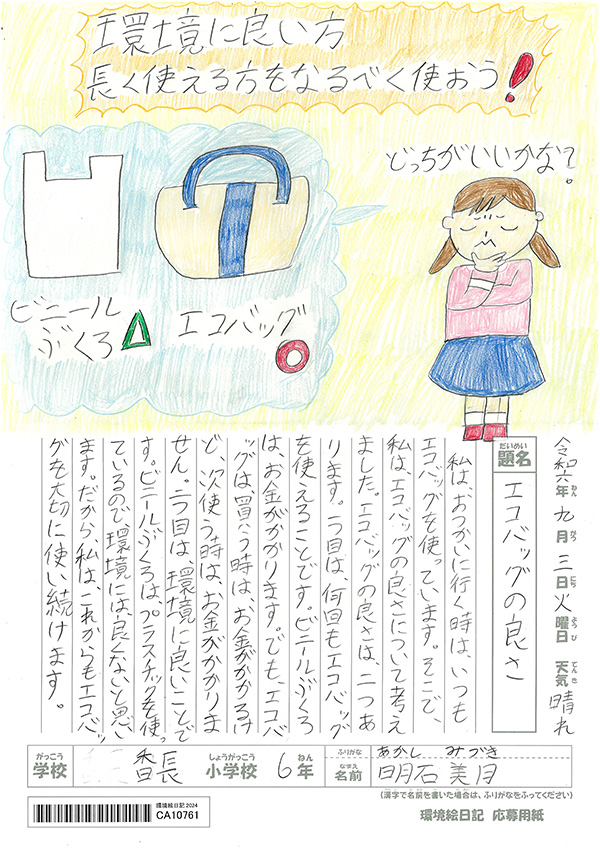 環境に良い方
長く使える方をなるべく使おう！
どっちがいいかな？
ビニール
ぶくろ
エコバッグ
令和六年九月三日火曜日 天気晴れ
ねん がつ にち ようび てんき
だいめい
題名 エコバッグの良さ
私は、おつかいに行く時は、いつも
エコバッグを使っています。そこで、
私は、エコバッグの良さについて考え
ました。エコバッグの良さは、二つあ
ります。一つ目は、何回もエコバッグ
を使えることです。ビニールぶくろ
は、お金がかかります。でも、エコバ
ッグは、買う時は、お金がかかるけ
ど、次使う時は、お金がかかりま
せん。二つ目は、環境に良いことで
す。ビニールぶくろは、プラスチックを使っ
ているので、環境には、良くないと思い
ます。だから、私は、これからもエコバッ
グを大切に使い続けます。
がっこう しょうがっこう ねん
学校 香長 小学校 6年
ふりがな あかし みづき
なまえ
名前 明石 美月
(漢字で名前を書いた場合は、ふりがなをふってください)
環境絵日記2024
CA10761
環境絵日記 応募用紙